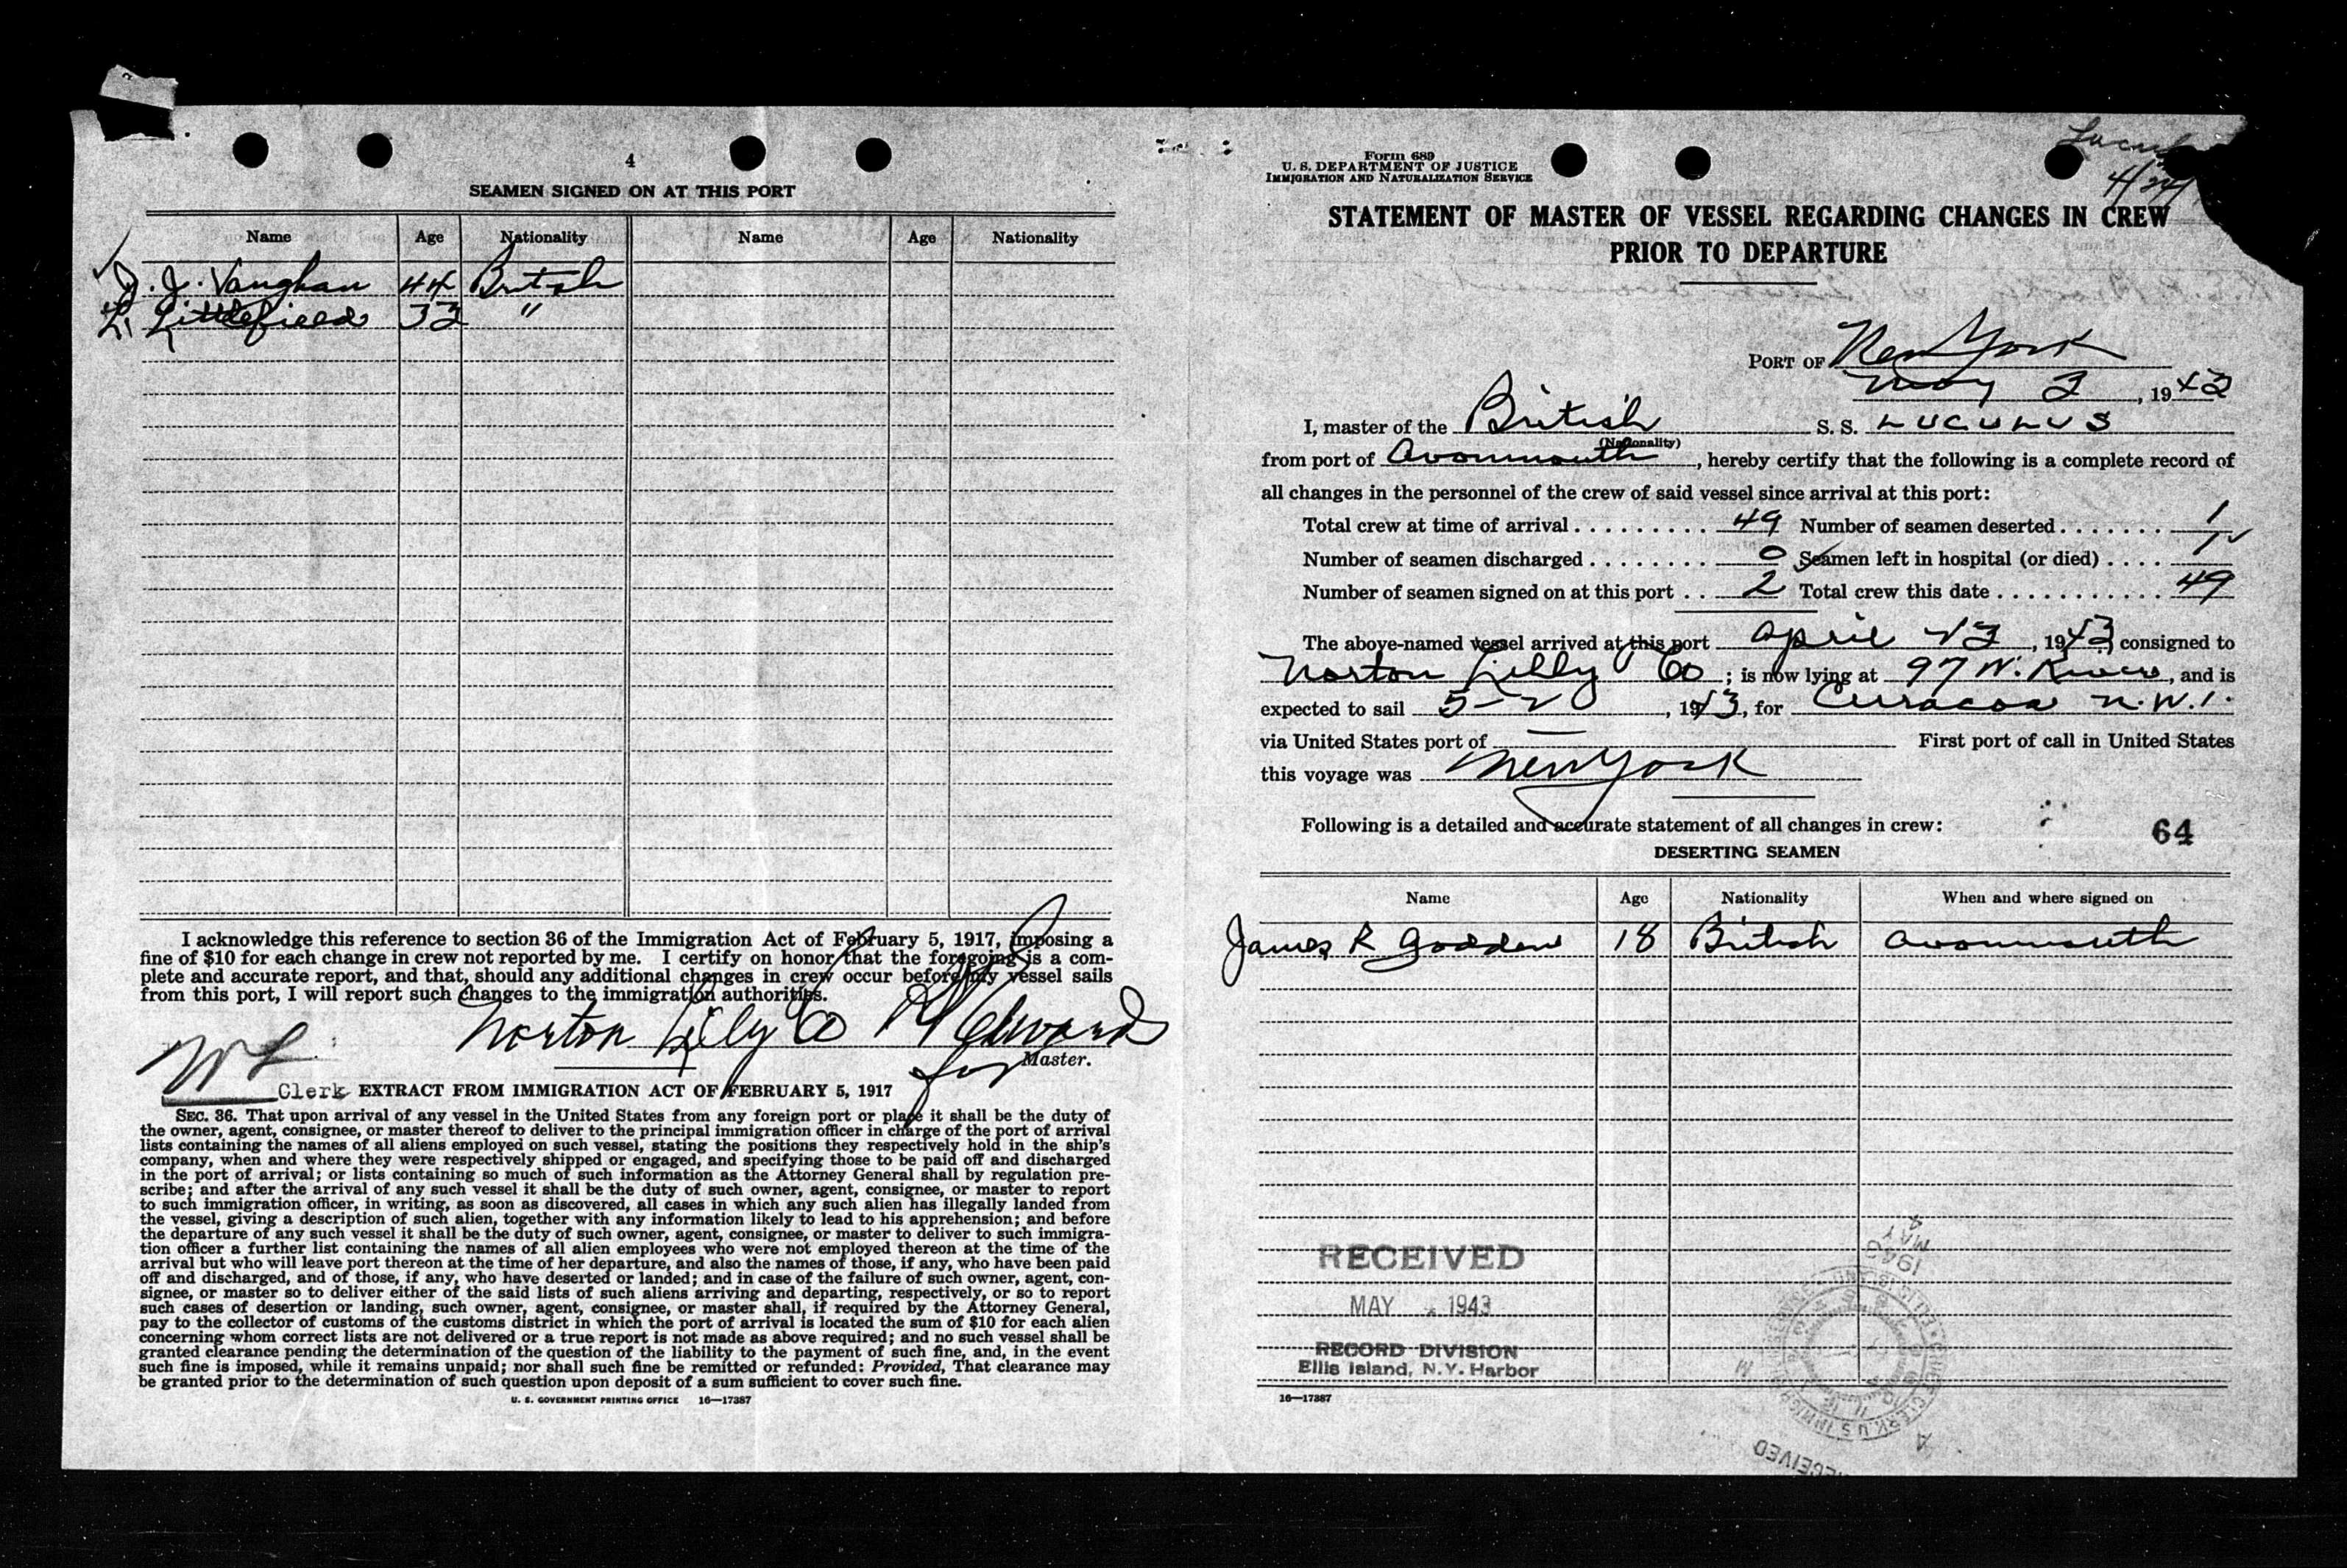 4
SEAMEN SIGNED ON AT THIS PORT
Name Age Nationality Name Age Nationality
J. J. Vaughan 44 British
L. Littlefield 33 "
I acknowledge this reference to section 36 of the Immigration Act of February 5, 1917, imposing a
fine of $10 for each change in crew not reported by me. I certify on honor that the foregoing is a com-
plete and accurate report, and that, should any additional changes in crew occur before my vessel sails
from this port, I will report such changes to the immigration authorities.
Norton Lilly Co
for Master.
Clerk EXTRACT FROM IMMIGRATION ACT OF FEBRUARY 5, 1917
SEC. 36. That upon arrival of any vessel in the United States from any foreign port or place it shall be the duty of
the owner, agent, consignee, or master thereof to deliver to the principal immigration officer in charge of the port of arrival
lists containing the names of all aliens employed on such vessel, stating the positions they respectively hold in the ship's
company, when and where they were respectively shipped or engaged, and specifying those to be paid off and discharged
in the port of arrival; or lists containing so much of such information as the Attorney General shall by regulation pre-
scribe; and after the arrival of any such vessel it shall be the duty of such owner, agent, consignee, or master to report
to such immigration officer, in writing, as soon as discovered, all cases in which any such alien has illegally landed from
the vessel, giving a description of such alien, together with any information likely to lead to his apprehension; and before
the departure of any such vessel it shall be the duty of such owner, agent, consignee, or master to deliver to such immigra-
tion officer a further list containing the names of all alien employees who were not employed thereon at the time of the
arrival but who will leave port thereon at the time of her departure, and also the names of those, if any, who have been paid
off and discharged, and of those, if any, who have deserted or landed; and in case of the failure of such owner, agent, con-
signee, or master so to deliver either of the said lists of such aliens arriving and departing, respectively, or so to report
such cases of desertion or landing, such owner, agent, consignee, or master shall, if required by the Attorney General,
pay to the collector of customs of the customs district in which the port of arrival is located the sum of $10 for each alien
concerning whom correct lists are not delivered or a true report is not made as above required; and no such vessel shall be
granted clearance pending the determination of the question of the liability to the payment of such fine, and, in the event
such fine is imposed, while it remains unpaid; nor shall such fine be remitted or refunded: Provided, That clearance may
be granted prior to the determination of such question upon deposit of a sum sufficient to cover such fine.
U. S. GOVERNMENT PRINTING OFFICE 16—17387
Form 689
U. S. DEPARTMENT OF JUSTICE
IMMIGRATION AND NATURALIZATION SERVICE
4/24/
STATEMENT OF MASTER OF VESSEL REGARDING CHANGES IN CREW
PRIOR TO DEPARTURE
PORT OF New York
May 2, 1943
I, master of the British S. S. LUCULUS
(Nationality)
from port of Avonmouth, hereby certify that the following is a complete record of
all changes in the personnel of the crew of said vessel since arrival at this port:
Total crew at time of arrival 49 Number of seamen deserted 1
Number of seamen discharged 0 Seamen left in hospital (or died) 1
Number of seamen signed on at this port 2 Total crew this date 49
The above-named vessel arrived at this port April 23, 1943, consigned to
Norton Lilly Co; is now lying at 97 N. River, and is
expected to sail 5-2, 1943, for Curacoa N.W.I.
via United States port of — First port of call in United States
this voyage was New York
Following is a detailed and accurate statement of all changes in crew:
64
DESERTING SEAMEN
Name Age Nationality When and where signed on
James R Godden 18 British Avonmouth
RECEIVED
MAY 1943
RECORD DIVISION
Ellis Island, N.Y. Harbor
16—17387
MAY 4
1943
RECEIVED